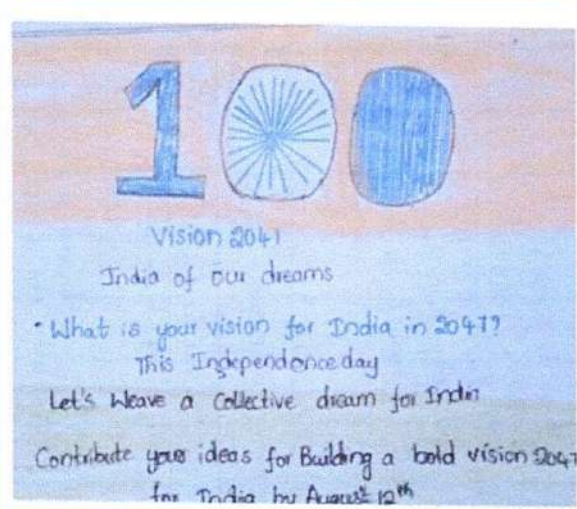 100
Vision 2047
India of our dreams
• What is your vision for India in 2047?
This Independence day
Let's Weave a Collective dream for India
Contribute your ideas for Building a bold vision 2047
for India by August 12th